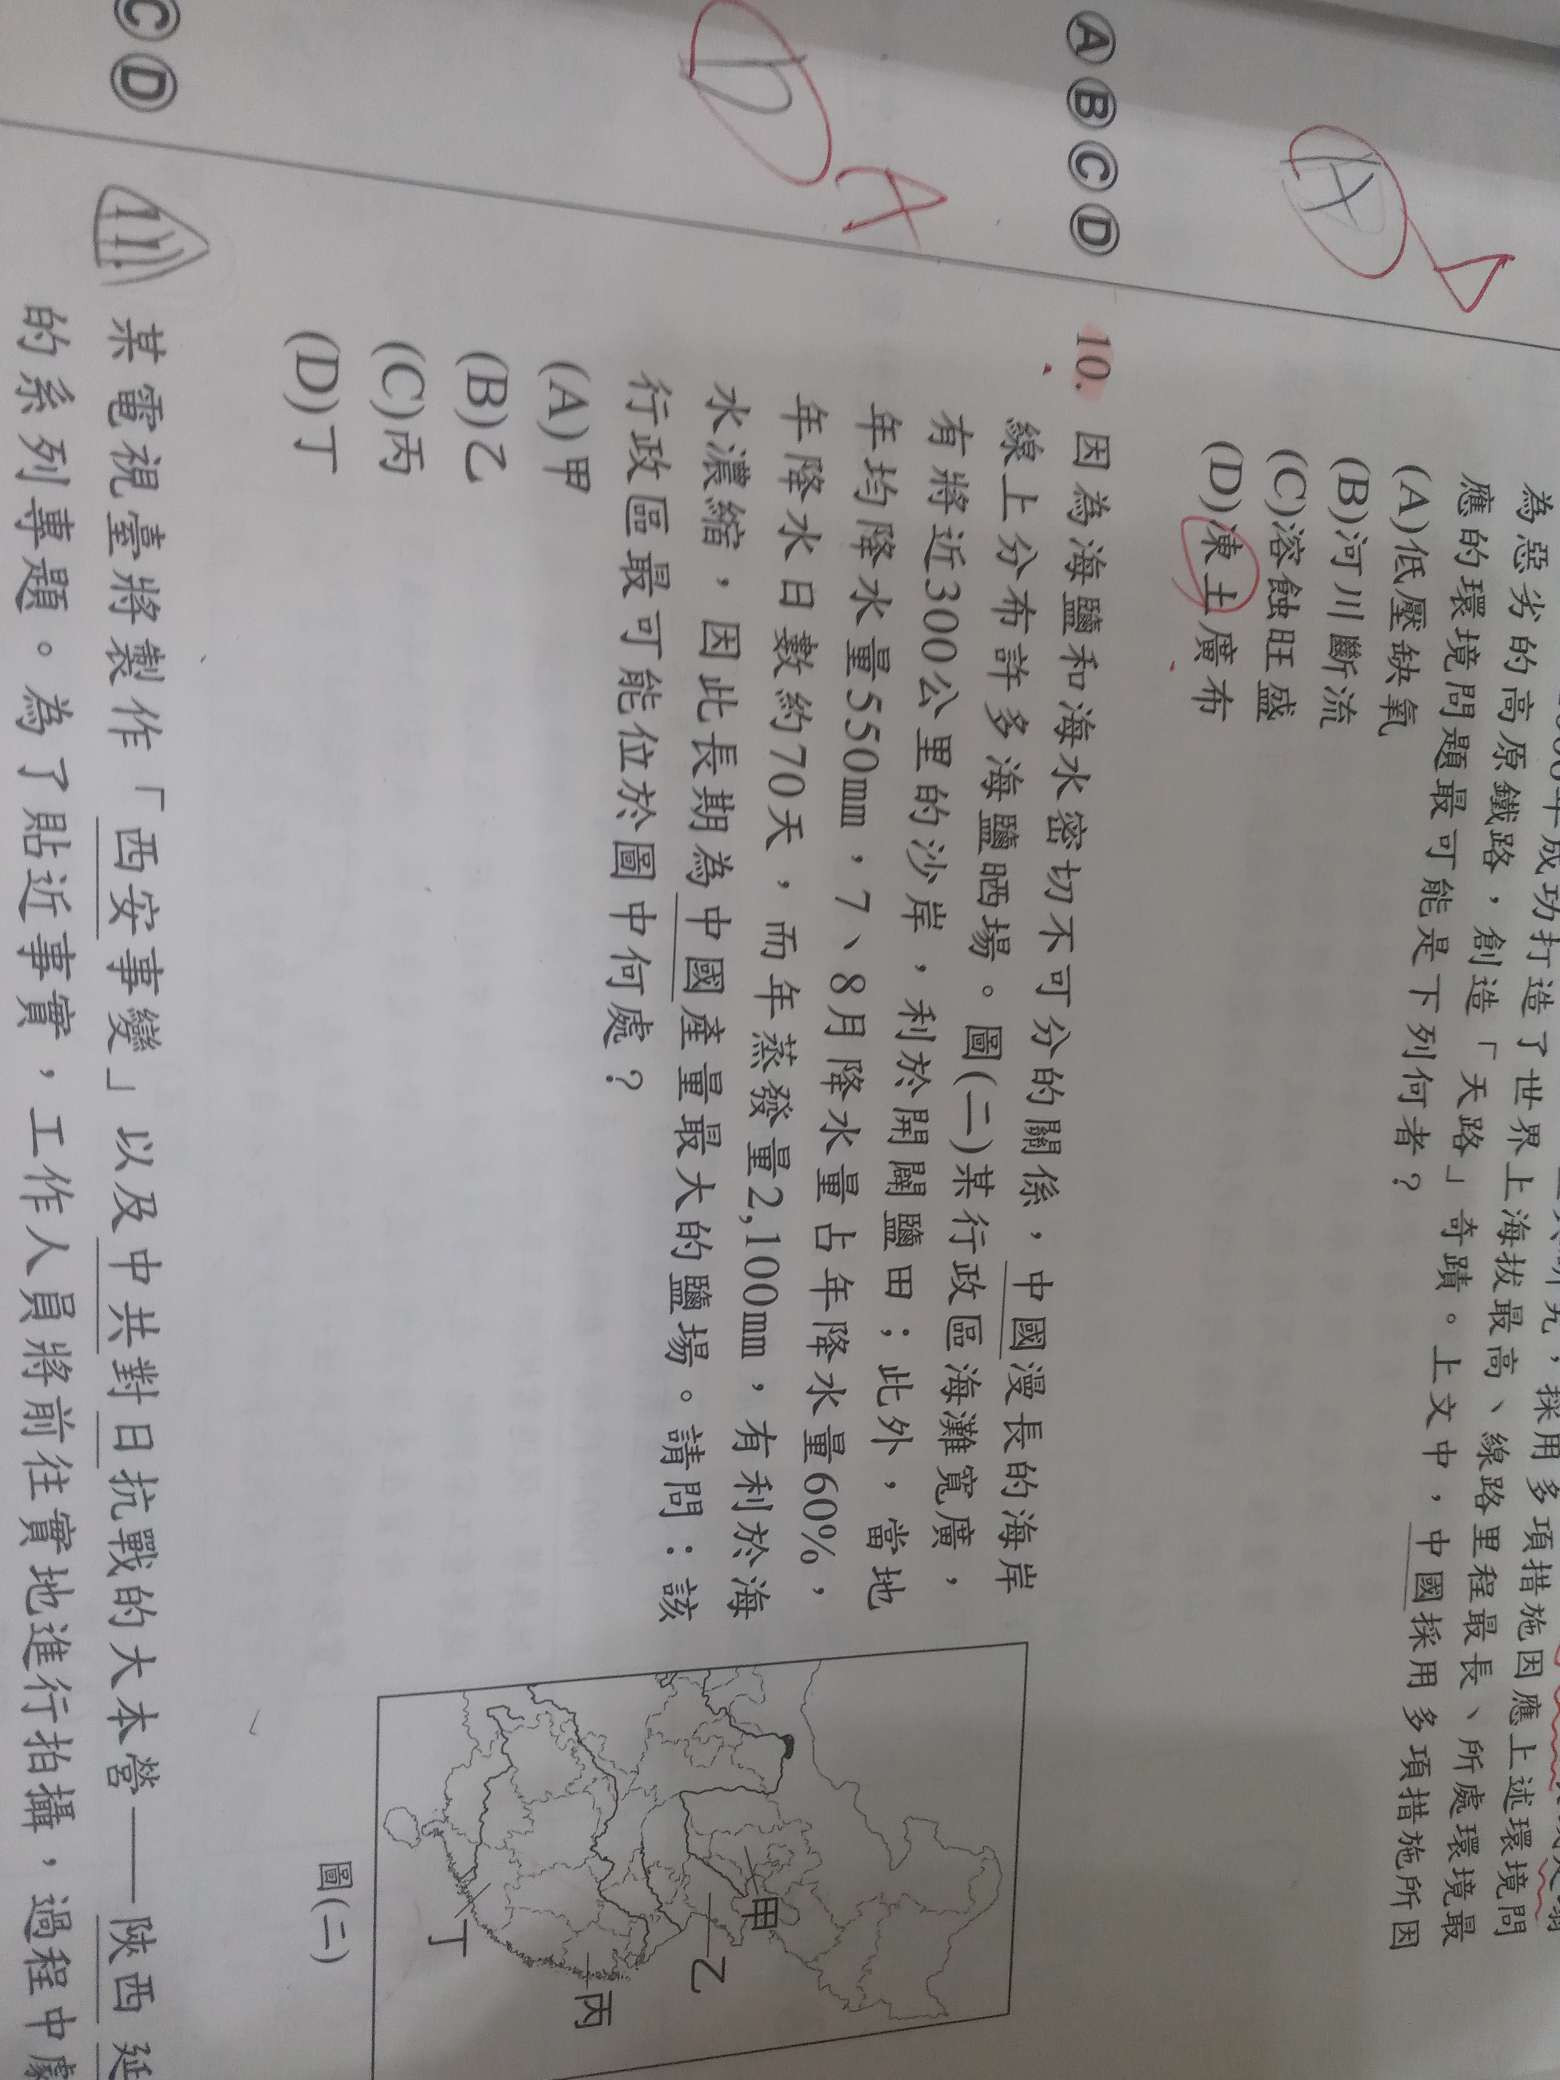 為惡劣的高原鐵路，創造「天路」奇蹟。上文中，中國採用多項措施所因
應的環境問題最可能是下列何者？
(A)低壓缺氧
(B)河川斷流
(C)溶蝕旺盛
(D)凍土廣布
A
D
ⒶⒷⒸⒹ
10. 因為海鹽和海水密切不可分的關係，中國漫長的海岸
線上分布許多海鹽晒場。圖(二)某行政區海灘寬廣，
有將近300公里的沙岸，利於開闢鹽田；此外，當地
年均降水量550mm，7、8月降水量占年降水量60%，
年降水日數約70天，而年蒸發量2,100mm，有利於海
水濃縮，因此長期為中國產量最大的鹽場。請問：該
行政區最可能位於圖中何處？
(A)甲
(B)乙
(C)丙
(D)丁
D
A
甲
乙
丙
丁
圖(二)
ⒸⒹ
11. 某電視臺將製作「西安事變」以及中共對日抗戰的大本營——陝西延
的系列專題。為了貼近事實，工作人員將前往實地進行拍攝，過程中